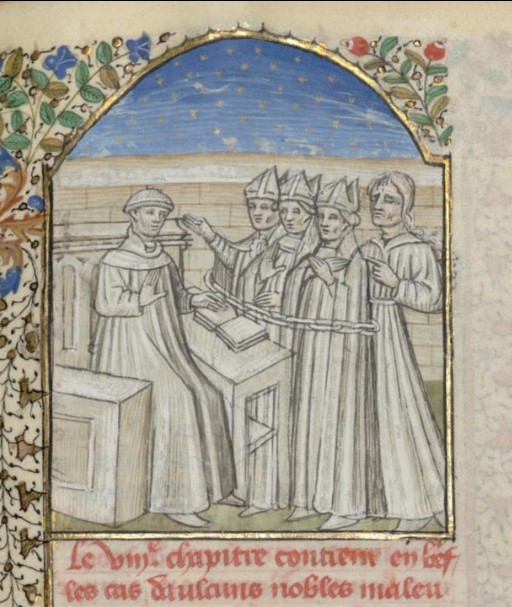 Le viije chapitre contient en bref
les cas daulcuns nobles maleu